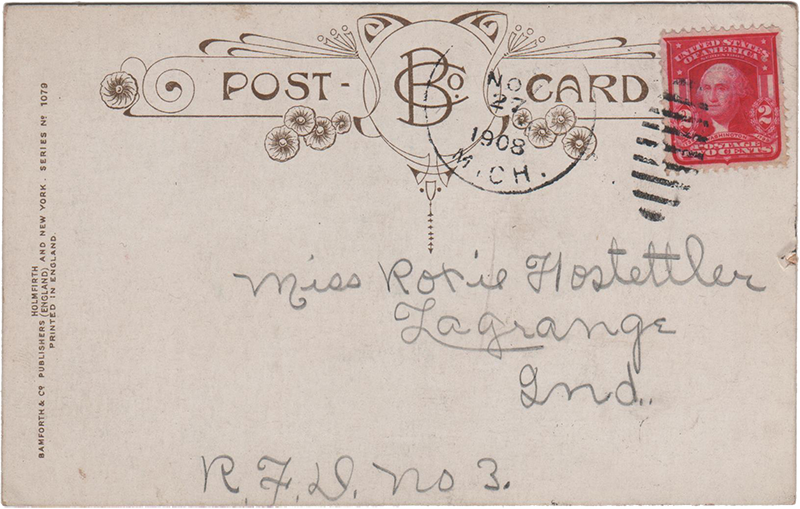 POST-CARD
BCo.
NOV
27
1908
MICH.
UNITED STATES
OF AMERICA
2
POSTAGE
TWO CENTS
Miss Roxie Hostettler
Lagrange
Ind.
R.F.D. No 3.
BAMFORTH & Co. PUBLISHERS (ENGLAND) AND NEW YORK. SERIES No. 1079
HOLMFIRTH
PRINTED IN ENGLAND.